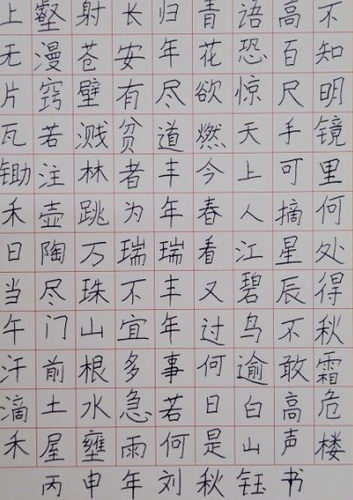 不知明镜里何处得秋霜危楼
高百尺手可摘星辰不敢高声
语恐惊天上人江碧鸟逾白山
青花欲燃今春看又过何日是
归年尽道丰年瑞丰年事若何
长安有贫者为瑞不宜多急雨
射苍壁溅林跳万珠山根水壅
壑漫窍若注壶陶尽门前土屋
上无片瓦锄禾日当午汗滴禾
丙申年刘秋钰书